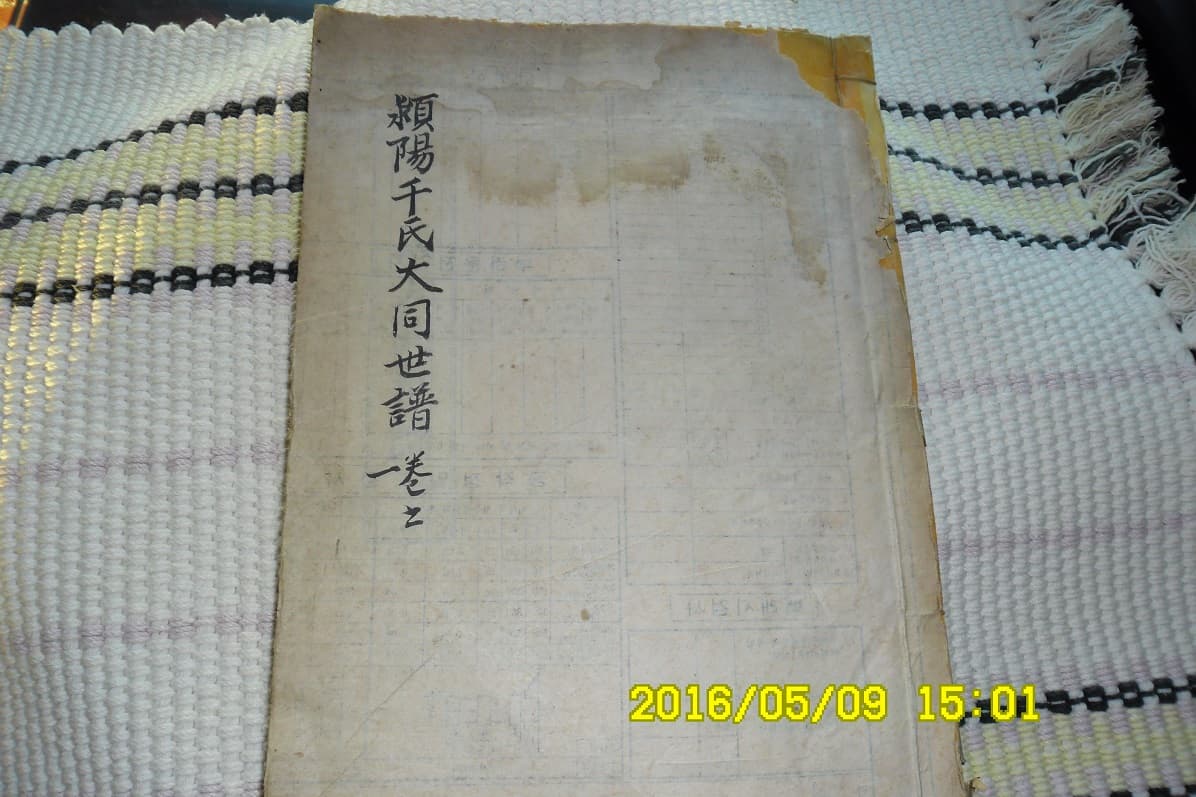 潁陽千氏大同世譜 卷之一
2016/05/09 15:01